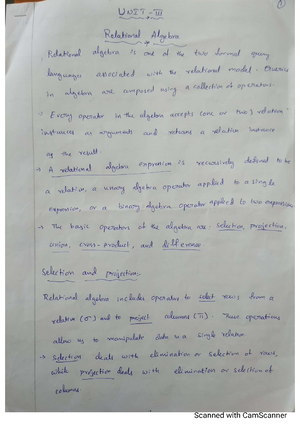 ①
UNIT-III
Relational Algebra
Relational algebra is one of the two formal query
languages associated with the relational model. Queries
in algebra are composed using a collection of operators.
Every operator in the algebra accepts (one or two) relation
instances as arguments and returns a relation instance
as the result.
→ A relational algebra expression is recursively defined to be
a relation, a unary algebra operator applied to a single
expression, or a binary algebra operator applied to two expressions
→ The basic operators of the algebra are: selection, projection,
union, cross-product, and difference
Selection and projection:
Relational algebra includes operators to select rows from a
relation (σ) and to project columns (π). These operations
allow us to manipulate data in a single relation.
→ Selection deals with elimination or selection of rows,
while projection deals with elimination or selection of
columns.
Scanned with CamScanner